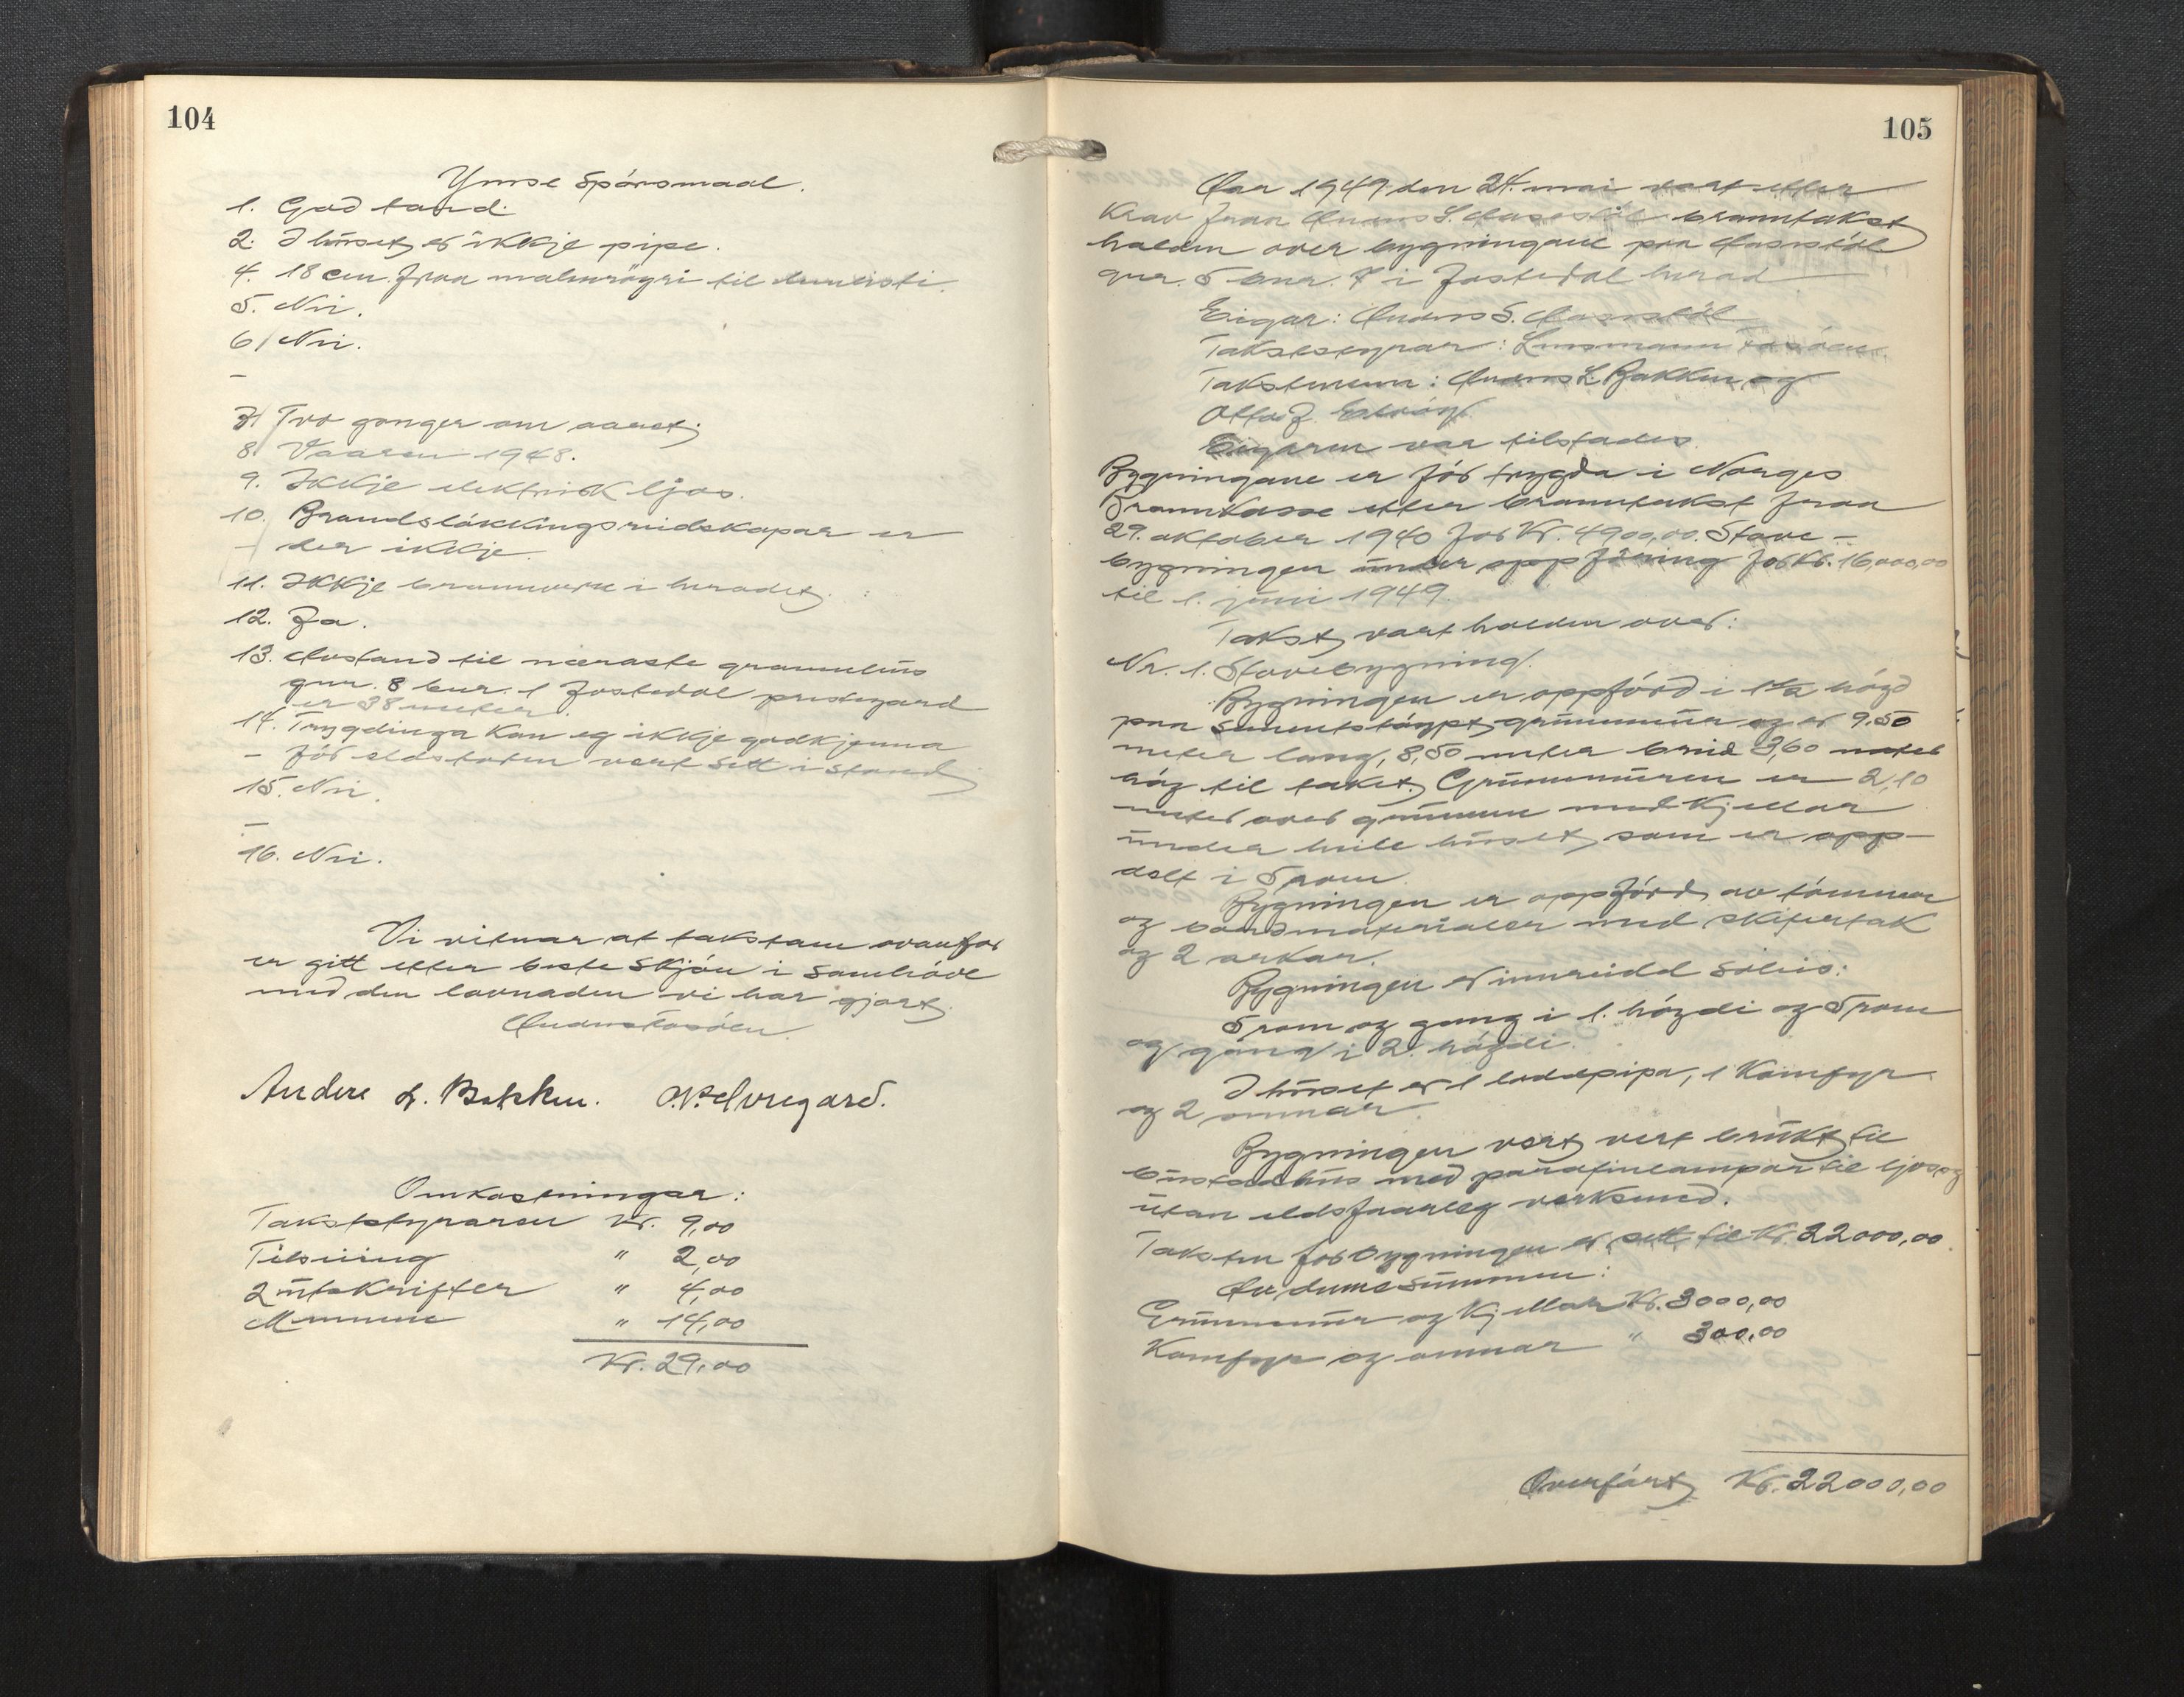 104
Ymse Spórsmaal.
1. God tand.
2. I húset er ikkje pipe.
4. 18 cm. fraa malmrøyri til
5. Nei.
6/ Nei.
-
7/ Tvo gonger om aaret.
8. Vaaren 1948.
9. Ikkje elektrisk ljos.
10. Brandslókkingsreidskapar er
- der ikkje.
11. Ikkje brannvern i heradet.
12. Ja.
13. Avstand til næraste grannehús
gnr. 8 bnr. 1 Jostedal prestegard
er 38 meter.
14. Trygdinga kan eg ikkje godkjenna
- fór eldstaden vert sett i stand
15. Nei.
-
16. Nei.
Vi vitnar at takstane ovanfor
er gitt etter beste skjón i samhóve
med den lovnaden vi har gjort.
Andere L. Bakken. O. P. Elvregard.
Omkostningar:
Takststyraren Kr. 9,00
Tilsiing " 2,00
2 útskrifter " 4,00
Mennene " 14,00
Kr. 29,00
105
Aar 1949 den 24. mai vart etter
krav fraa Anders S. Aasestól branntakst
halden over bygningane paa Aasestól
gnr. 5 bnr. 7 i Jostedal herad
Eigar: Anders S. Aasestól
Takststyrar: Lensmann
Takstmenn: Anders L. Bakken og
Otto J.
Eigaren var tilstades.
Bygningane er fór trygda i Norges
Brannkasse etter branntakst fraa
29. oktober 1940 for Kr. 4900,00. Stove-
bygningen únder oppfóring for kr. 16,000,00
til 1. júni 1949.
Takst vart halden over:
Nr. 1. Stovebygning.
Bygningen er oppfórd i 1 1/2 hógd
paa sementstóypt grúnnmúr og er 9.50
meter lang, 8,50 meter breid 3,60 meter
hóg til taket. Grúnnmúren er 2,10
meter over grúnnen med kjellar
únder heile húset, som er opp-
delt i 5 rom.
Bygningen er oppfórd av tómmer
og bordmaterialer med skifertak
og 2 arkar.
Bygningen er innreidd soleis:
5 rom og gang i 1. hógdi og 5 rom
og gang i 2. hógdi.
I húset er 1 loddpipa, 1 Komfyr
og 2 omnar.
Bygningen vert brúkt til
bústadhús med parafinlampar til ljos og
útan eldsfaarleg verksemd.
Taksten for bygningen er sett til Kr. 22000,00
Av denne súmmen:
Grúnnmúr og kjellar Kr. 3000,00
Komfyr og omnar " 300,00
Overfórt Kr. 22000,00